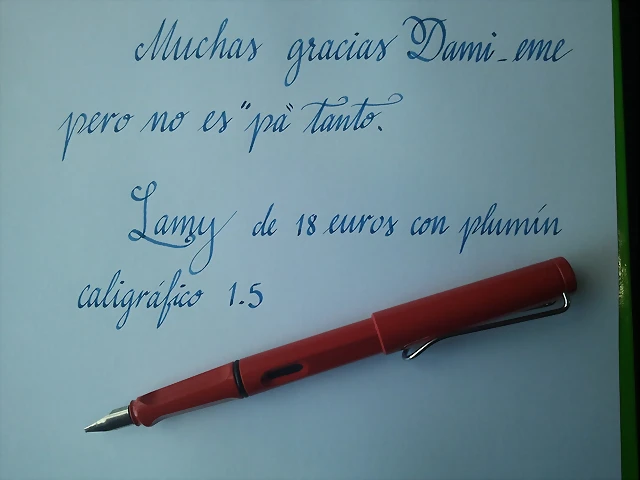 Muchas gracias Dami_eme
pero no es "pa" tanto.
Lamy de 18 euros con plumín
caligráfico 1.5